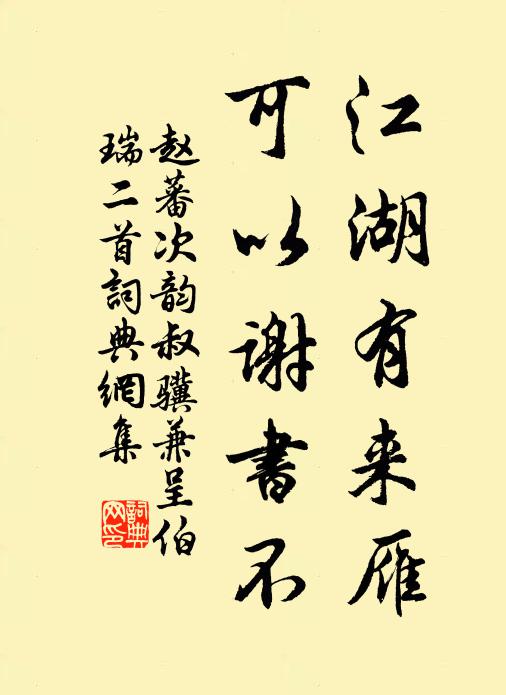 江湖有来雁
可以谢書不
赵蕃次韵叔骥兼呈伯
瑞二首詞典網集
詞典网印